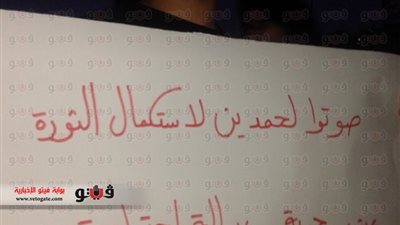 صوتوا لحمدين لاستكمال الثورة
ڤيتو
بوابة ڤيتو الإخبارية
www.vetogate.com